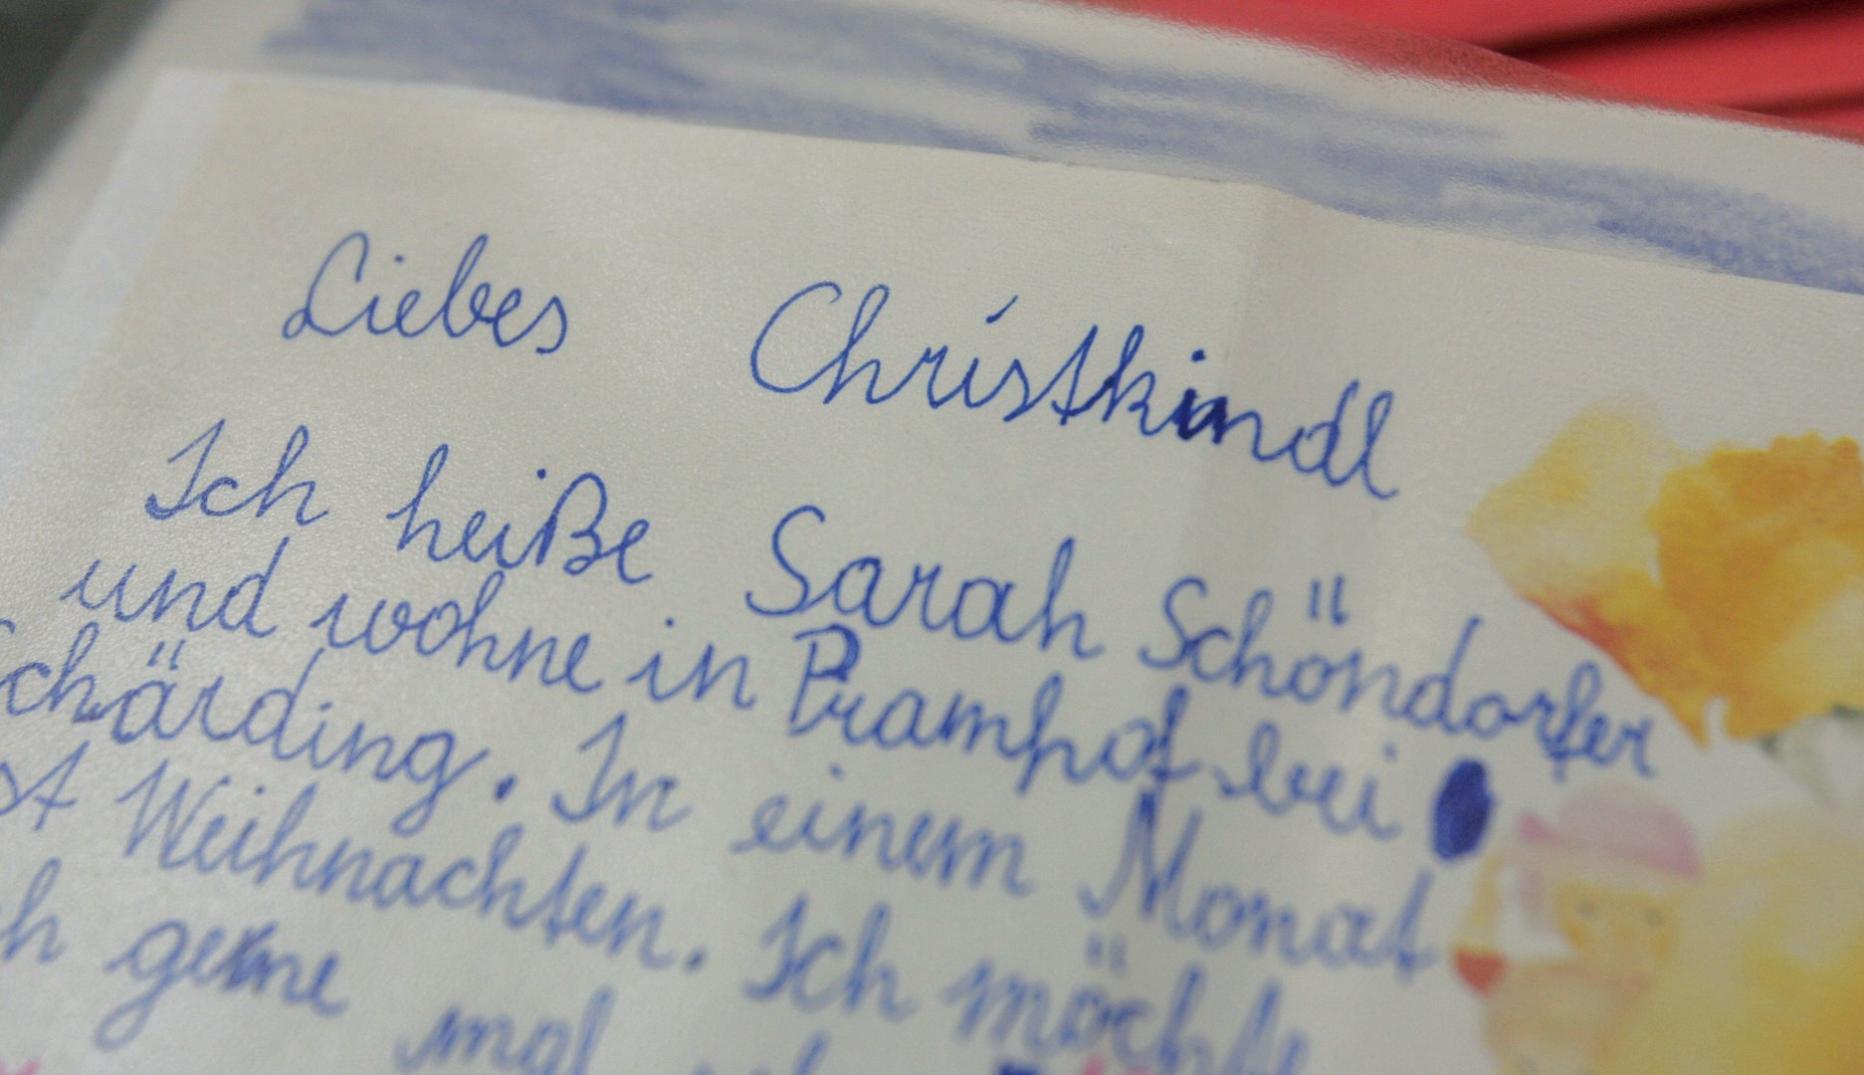 Liebes Christkindl
Ich heiße Sarah Schöndorfer
und wohne in Pramhof bei
Schärding. In einem Monat
ist Weihnachten. Ich möchte
gerne mal